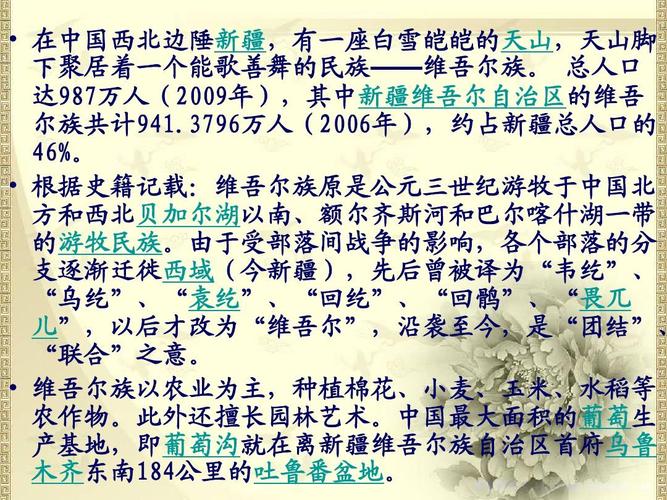 • 在中国西北边陲新疆，有一座白雪皑皑的天山，天山脚
下聚居着一个能歌善舞的民族——维吾尔族。 总人口
达987万人（2009年），其中新疆维吾尔自治区的维吾
尔族共计941.3796万人（2006年），约占新疆总人口的
46%。
• 根据史籍记载：维吾尔族原是公元三世纪游牧于中国北
方和西北贝加尔湖以南、额尔齐斯河和巴尔喀什湖一带
的游牧民族。由于受部落间战争的影响，各个部落的分
支逐渐迁徙西域（今新疆），先后曾被译为“韦纥”、
“乌纥”、“袁纥”、“回纥”、“回鹘”、“畏兀
儿”，以后才改为“维吾尔”，沿袭至今，是“团结”、
“联合”之意。
• 维吾尔族以农业为主，种植棉花、小麦、玉米、水稻等
农作物。此外还擅长园林艺术。中国最大面积的葡萄生
产基地，即葡萄沟就在离新疆维吾尔族自治区首府乌鲁
木齐东南184公里的吐鲁番盆地。